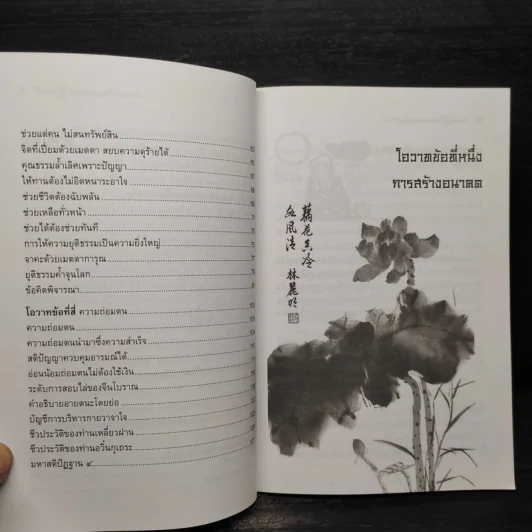 ช่วยแต่คน ไม่สนทรัพย์สิน
จิตที่เปี่ยมด้วยเมตตา สยบความดุร้ายได้
คุณธรรมล้ำเลิศเพราะปัญญา
ให้ทานต้องไม่อิดหนาระอาใจ
ช่วยชีวิตต้องฉับพลัน
ช่วยเหลือทั่วหน้า
ช่วยได้ต้องช่วยทันที
การให้ความยุติธรรมเป็นความยิ่งใหญ่
จาคะด้วยเมตตาการุณ
ยุติธรรมค้ำจุนโลก
ข้อคิดพิจารณา
โอวาทข้อที่สี่ ความถ่อมตน
ความถ่อมตน
ความถ่อมตนนำมาซึ่งความสำเร็จ
สติปัญญาควบคุมอารมณ์ได้
อ่อนน้อมถ่อมตนไม่ต้องใช้เงิน
ระดับการสอบไล่ของจีนโบราณ
คำอธิบายอายตนะโดยย่อ
บัญชีการบริหารกายวาจาใจ
ชีวประวัติของท่านเหลี่ยวฝาน
ชีวประวัติของท่านอวิ๋นกุเถระ
มหาสติปัฏฐาน ๔
โอวาทข้อที่หนึ่ง
การสร้างอนาคต
藕花香冷
風清
林麗明